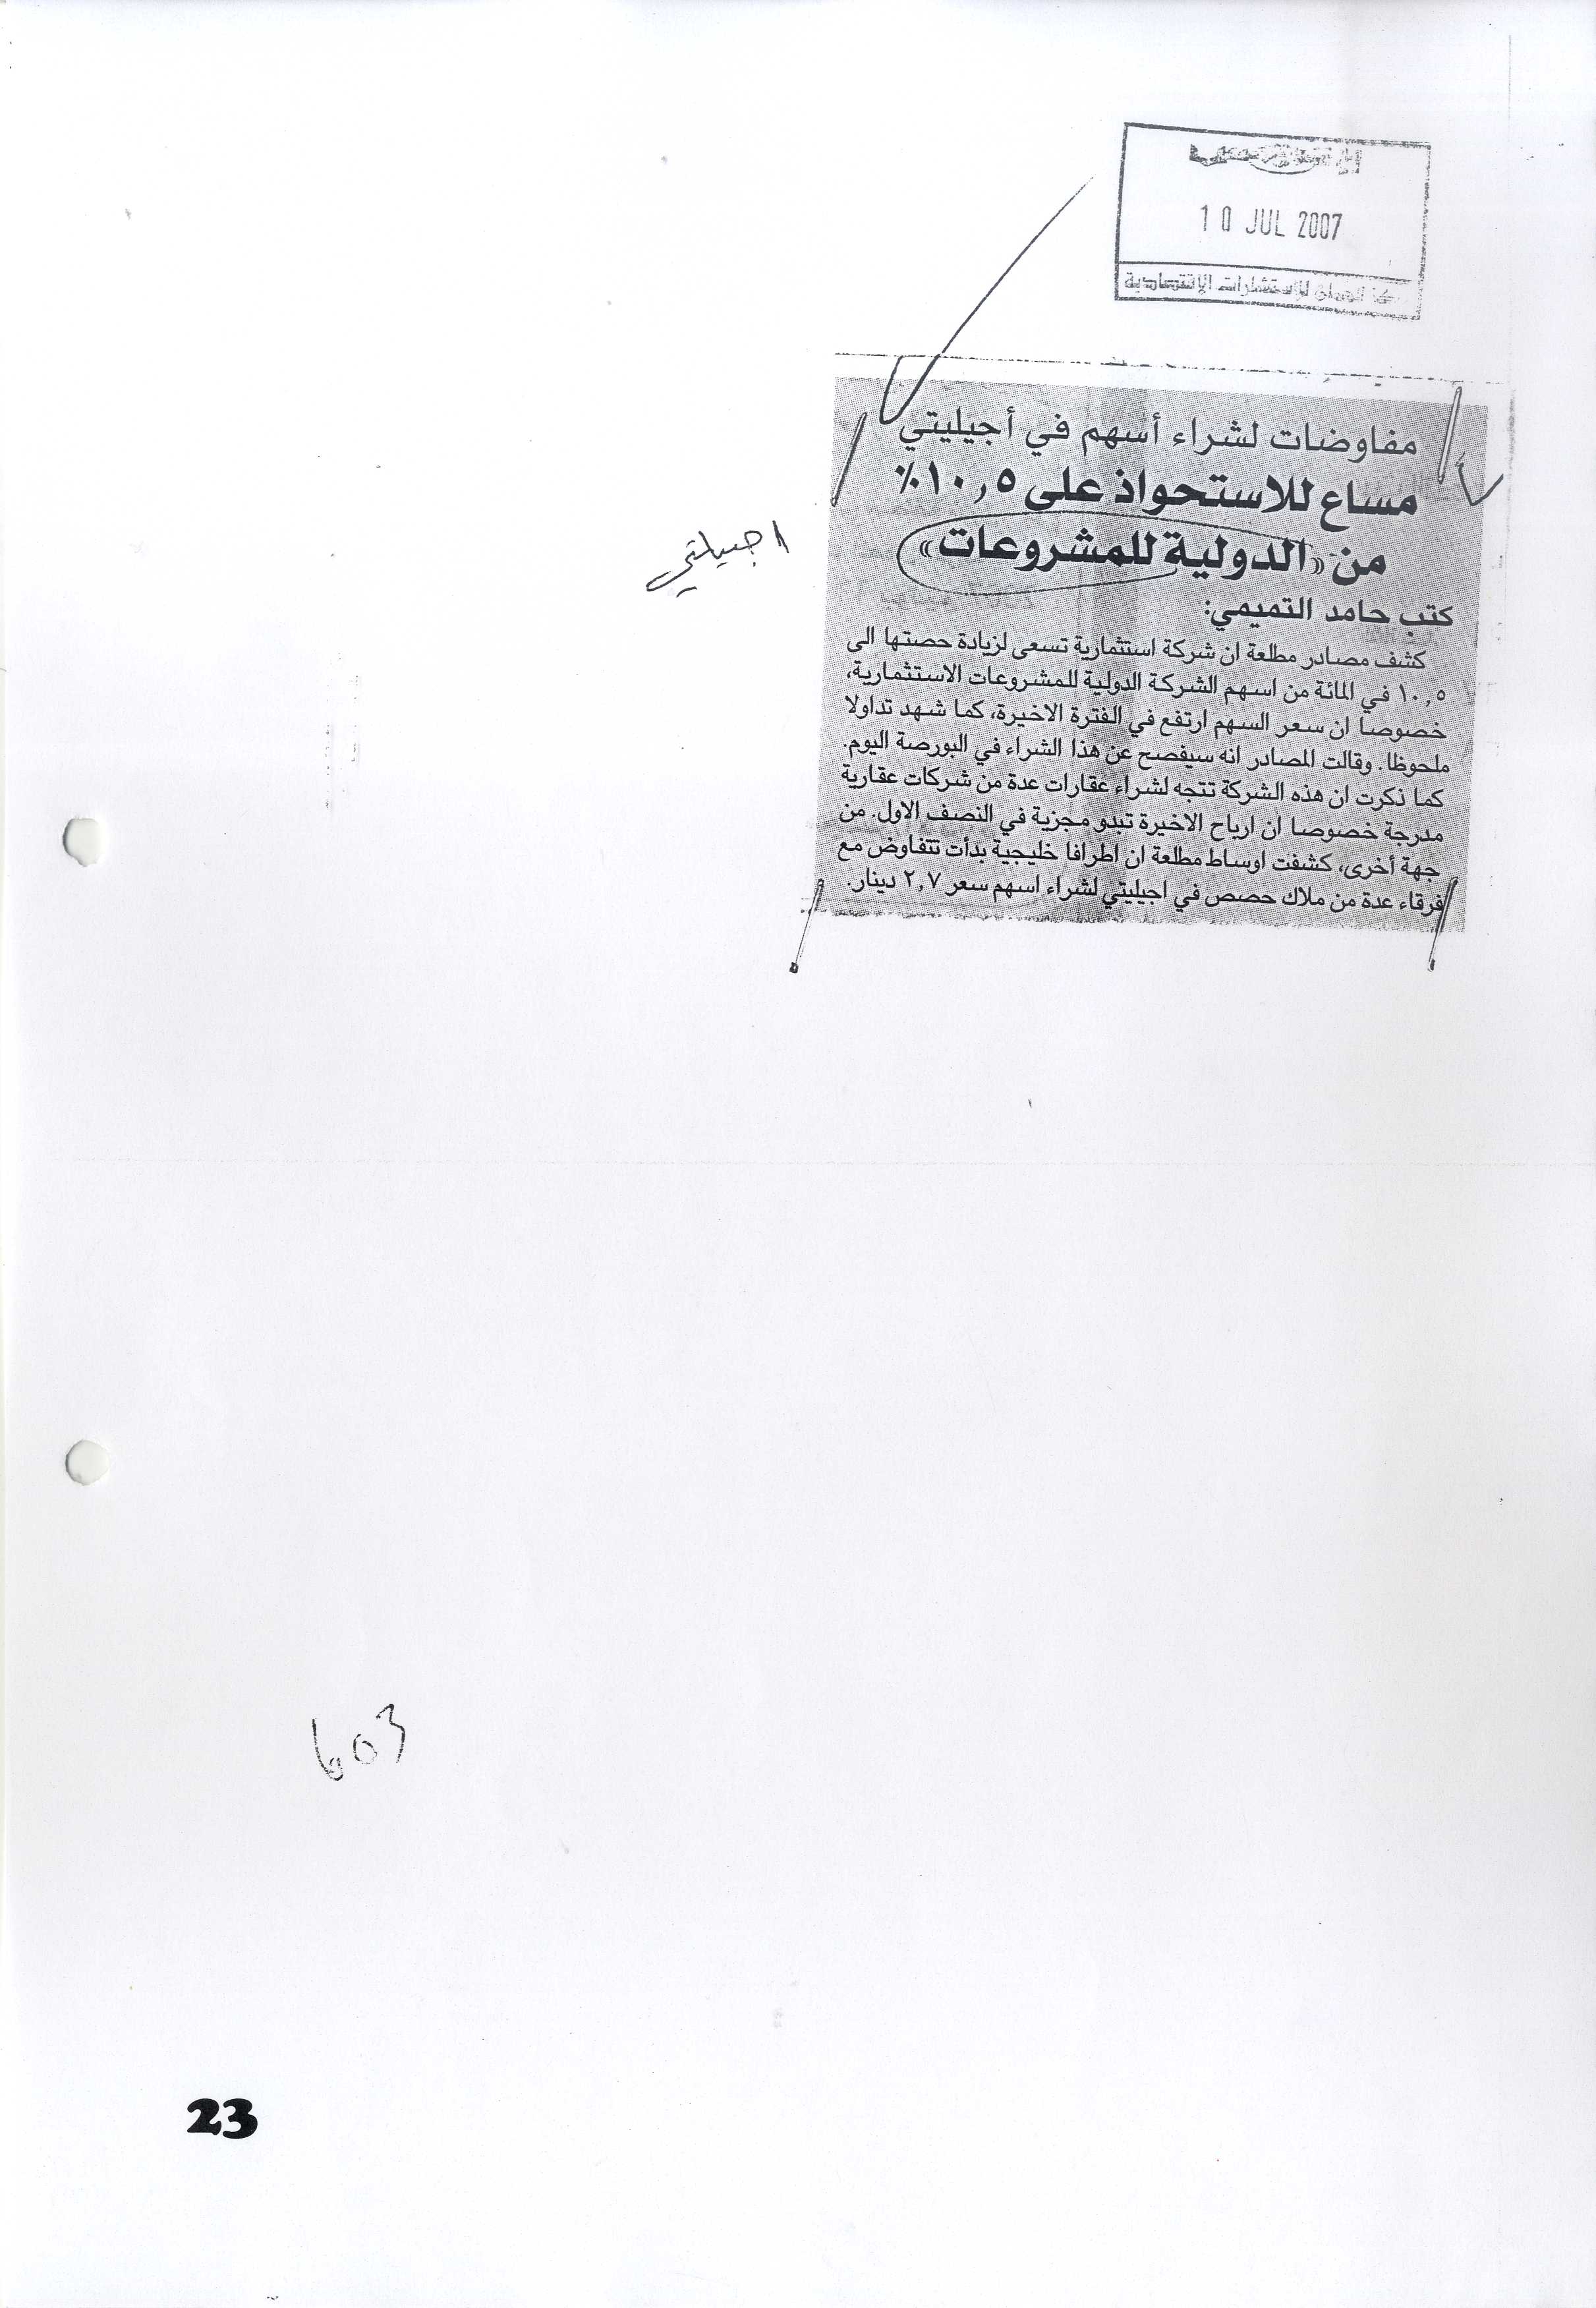 10 JUL 2007
للاستشارات الاقتصادية
مفاوضات لشراء أسهم في أجيليتي
مساع للاستحواذ على ١٠,٥٪
من «الدولية للمشروعات»
اجيلتي
كتب حامد التميمي:
كشف مصادر مطلعة ان شركة استثمارية تسعى لزيادة حصتها الى
١٠,٥ في المائة من اسهم الشركة الدولية للمشروعات الاستثمارية،
خصوصا ان سعر السهم ارتفع في الفترة الاخيرة، كما شهد تداولا
ملحوظا. وقالت المصادر انه سيفصح عن هذا الشراء في البورصة اليوم.
كما ذكرت ان هذه الشركة تتجه لشراء عقارات عدة من شركات عقارية
مدرجة خصوصا ان ارباح الاخيرة تبدو مجزية في النصف الاول. من
جهة أخرى، كشفت اوساط مطلعة ان اطرافا خليجية بدأت تتفاوض مع
فرقاء عدة من ملاك حصص في اجيليتي لشراء اسهم سعر ٢,٧ دينار.
603
23